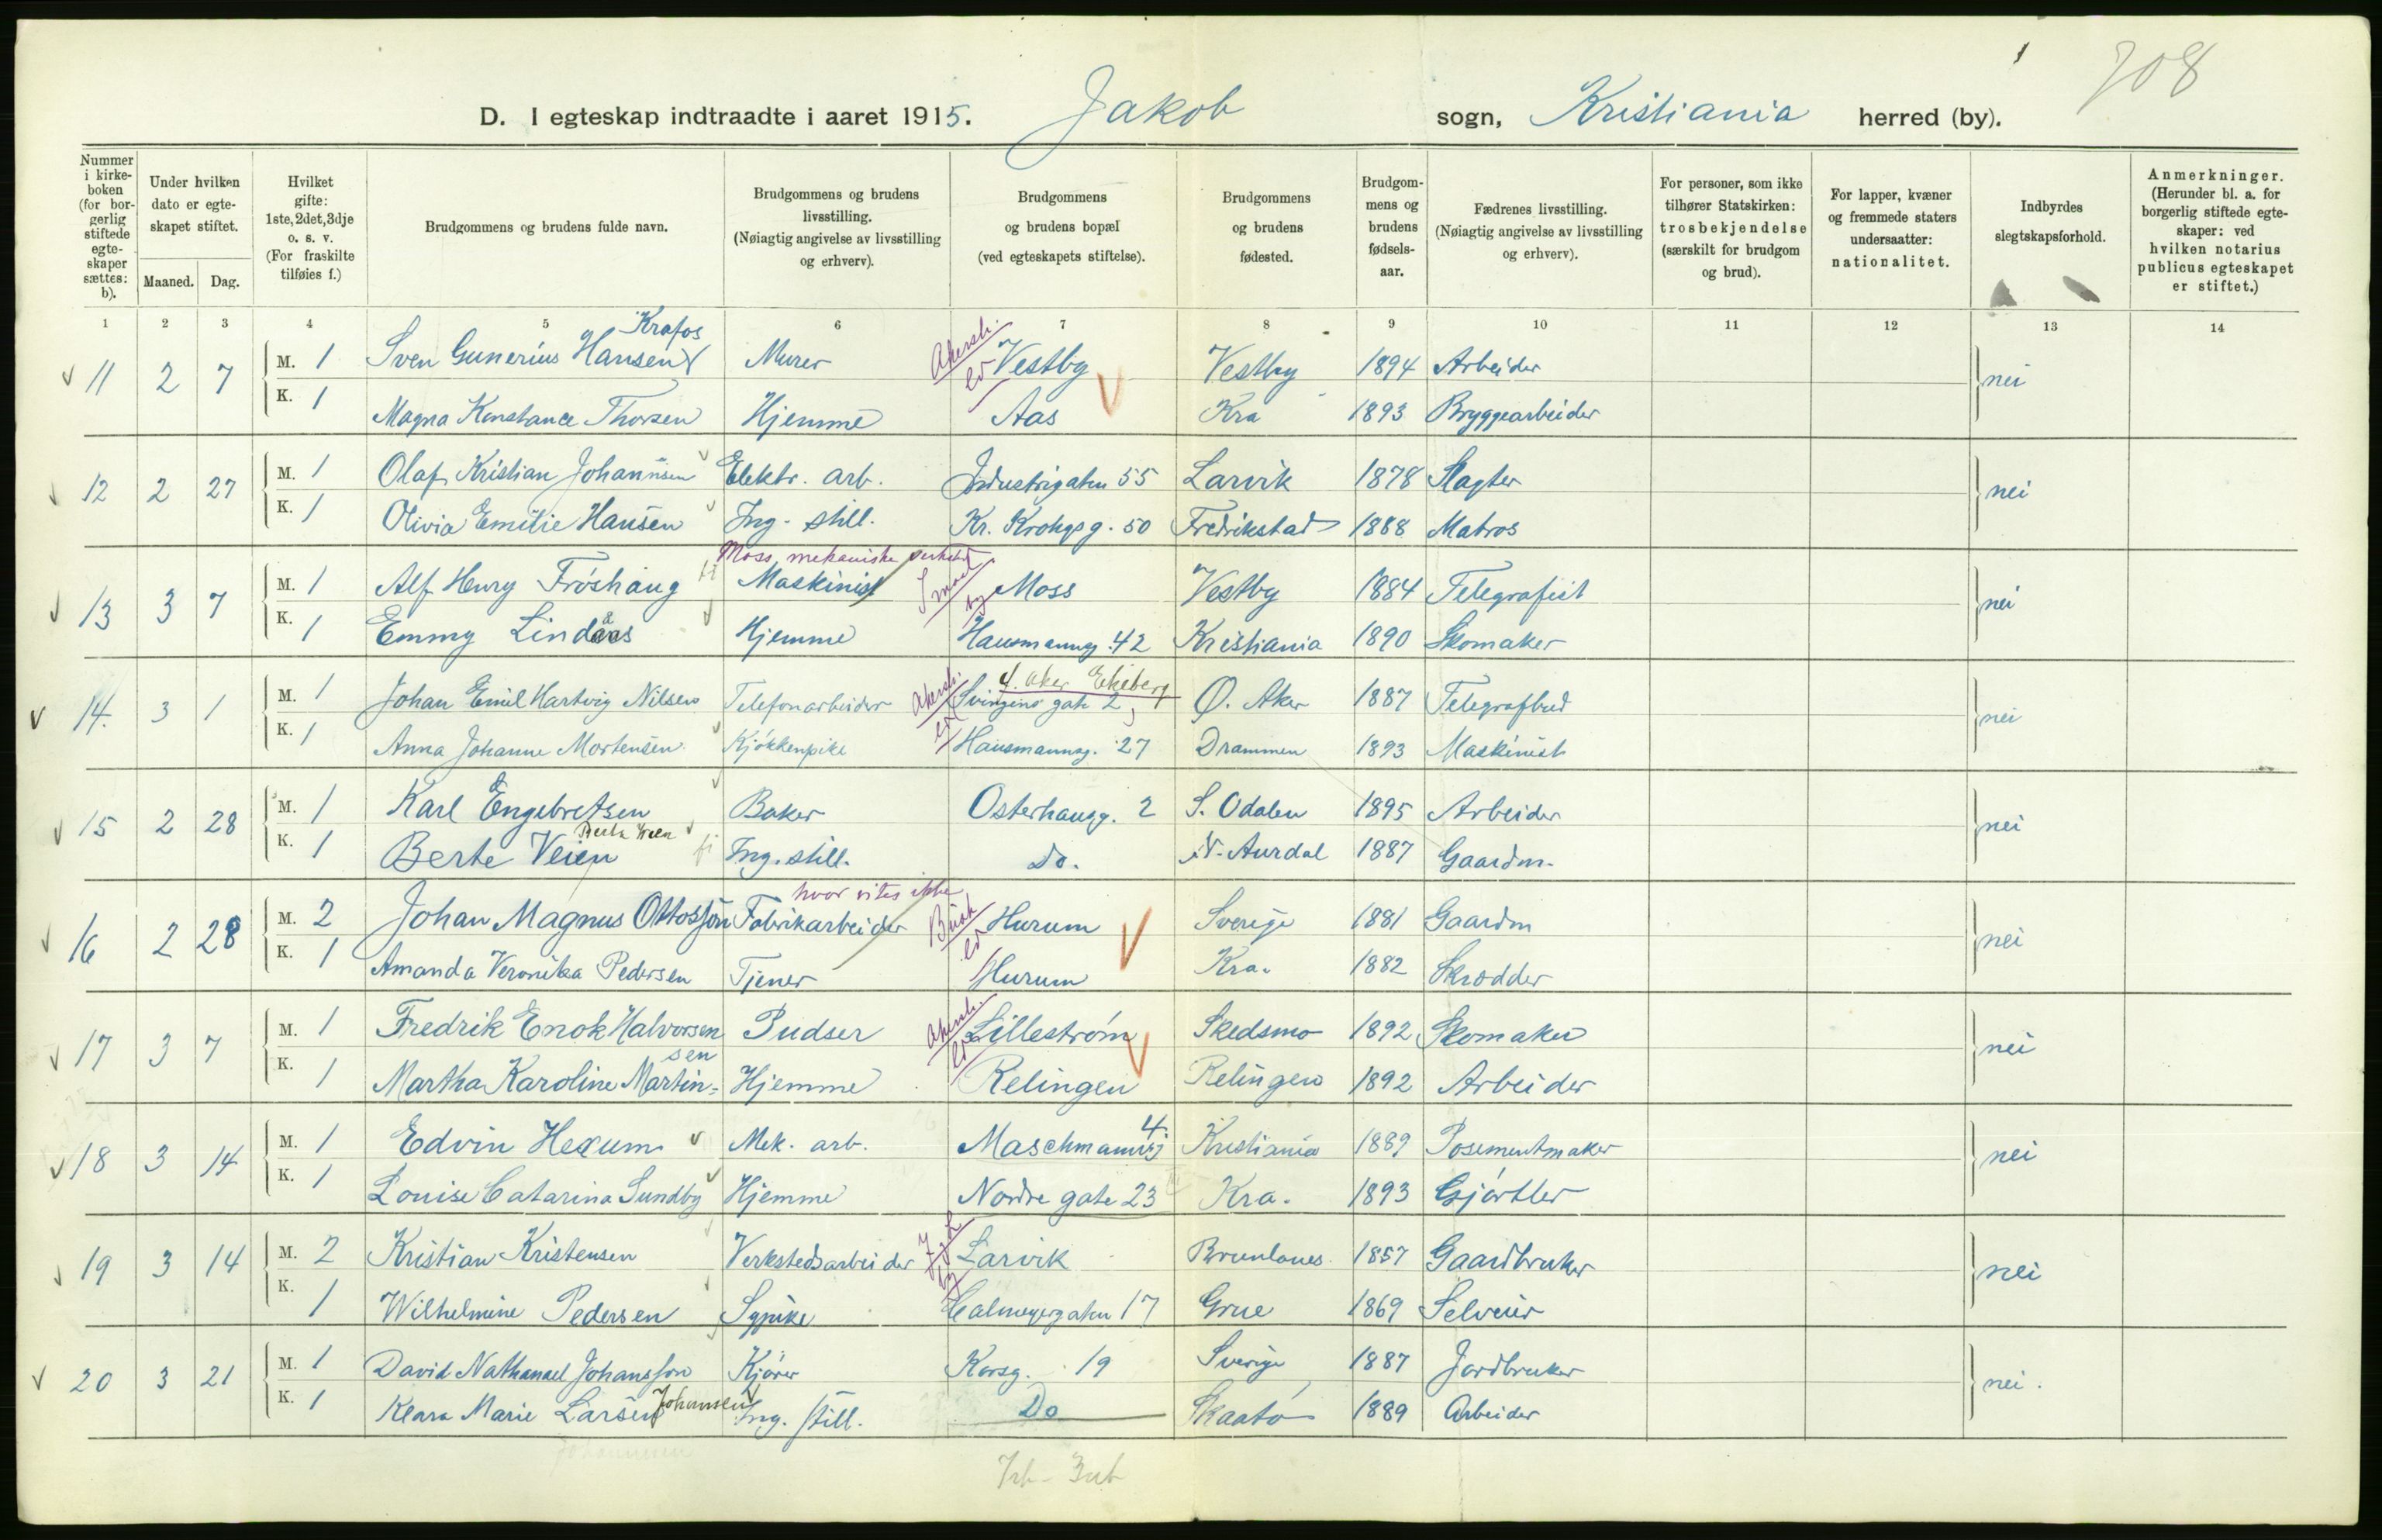 708
D. I egteskap indtraadte i aaret 1915. Jakob sogn, Kristiania herred (by).
Nummer i kirkeboken (for borgerlig stiftede egteskaper sættes: b).
Under hvilken dato er egteskapet stiftet.
Maaned. Dag.
Hvilket gifte: 1ste, 2det, 3dje o. s. v. (For fraskilte tilføies f.)
Brudgommens og brudens fulde navn.
Brudgommens og brudens livsstilling. (Nøiagtig angivelse av livsstilling og erhverv).
Brudgommens og brudens bopæl (ved egteskapets stiftelse).
Brudgommens og brudens fødested.
Brudgommens og brudens fødselsaar.
Fædrenes livsstilling. (Nøiagtig angivelse av livsstilling og erhverv).
For personer, som ikke tilhører Statskirken: trosbekjendelse (særskilt for brudgom og brud).
For lapper, kvæner og fremmede staters undersaatter: nationalitet.
Indbyrdes slegtskapsforhold.
Anmerkninger. (Herunder bl. a. for borgerlig stiftede egteskaper: ved hvilken notarius publicus egteskapet er stiftet.)
1 2 3 4 5 6 7 8 9 10 11 12 13 14
Krafos
11 2 7 M. 1 Sven Gunerius Hansen Murer Akersh. Vestby Vestby 1894 Arbeider nei
K. 1 Magna Konstance Thorsen Hjemme Aas Kra 1893 Bryggearbeider
12 2 27 M. 1 Olaf Kristian Johannsen Elektr. arb. Industrigaten 55 Larvik 1878 Slagter nei
K. 1 Olivia Emilie Hansen Ing. still. Kr. Krohgsg. 50 Fredrikstad 1888 Matros
Moss mekaniske verksted
13 3 7 M. 1 Alf Henry Frøshaug Maskinist Smaal by Moss Vestby 1884 Telegrafist nei
K. 1 Emmy Lindaas Hjemme Hausmannsg. 42 Kristiania 1890 Skomaker
Aker Ekeberg
14. 3 1 M. 1 Johan Emil Hartvig Nilsen Telefonarbeider Akersh. Svingens gate 2 Ø. Aker 1887 Telegrafbud nei
K. 1 Anna Johanne Mortensen Kjøkkenpike Hausmannsg. 27 Drammen 1893 Maskinist
15 2 28 M. 1 Karl Engebretsen Baker Osterhausg. 2 S. Odalen 1895 Arbeider nei
K. 1 Berte Veien Ing. still. Do. N. Aurdal 1887 Gaardm.
hvor vites ikke
16 2 28 M. 2 Johan Magnus Ottosson Fabrikarbeider Busk Hurum Sverige 1881 Gaardm nei
K. 1 Amanda Veronika Pedersen Tjener Hurum Kra. 1882 Skrædder
17 3 7 M. 1 Fredrik Enok Halvorsen Pudser Akersh. Lillestrøm Skedsmo 1892 Skomaker nei
sen
K. 1 Martha Karoline Martin- Hjemme Relingen Relingen 1892 Arbeider
4.
18 3 14 M. 1 Edvin Hexum Mek. arb. Kristiania 1889 Posementmaker nei
K. 1 Louise Catarina Sundby Hjemme Nordre gate 23 Kra. 1893 Gjørtler
19 3 14 M. 2 Kristian Kristensen Verkstedsarbeider J. & L. by Larvik Brunlanes 1857 Gaardbruker nei
K. 1 Wilhelmine Pedersen Sypike Calmeyergaten 17 Grue 1869 Selveier
20 3 21 M. 1 David Nathanael Johansson Kjører Korsg. 19 Sverige 1887 Jordbruker nei.
K. 1 Klara Marie Larsen Johannsen Ing. still. Do Skaatø 1889 Arbeider